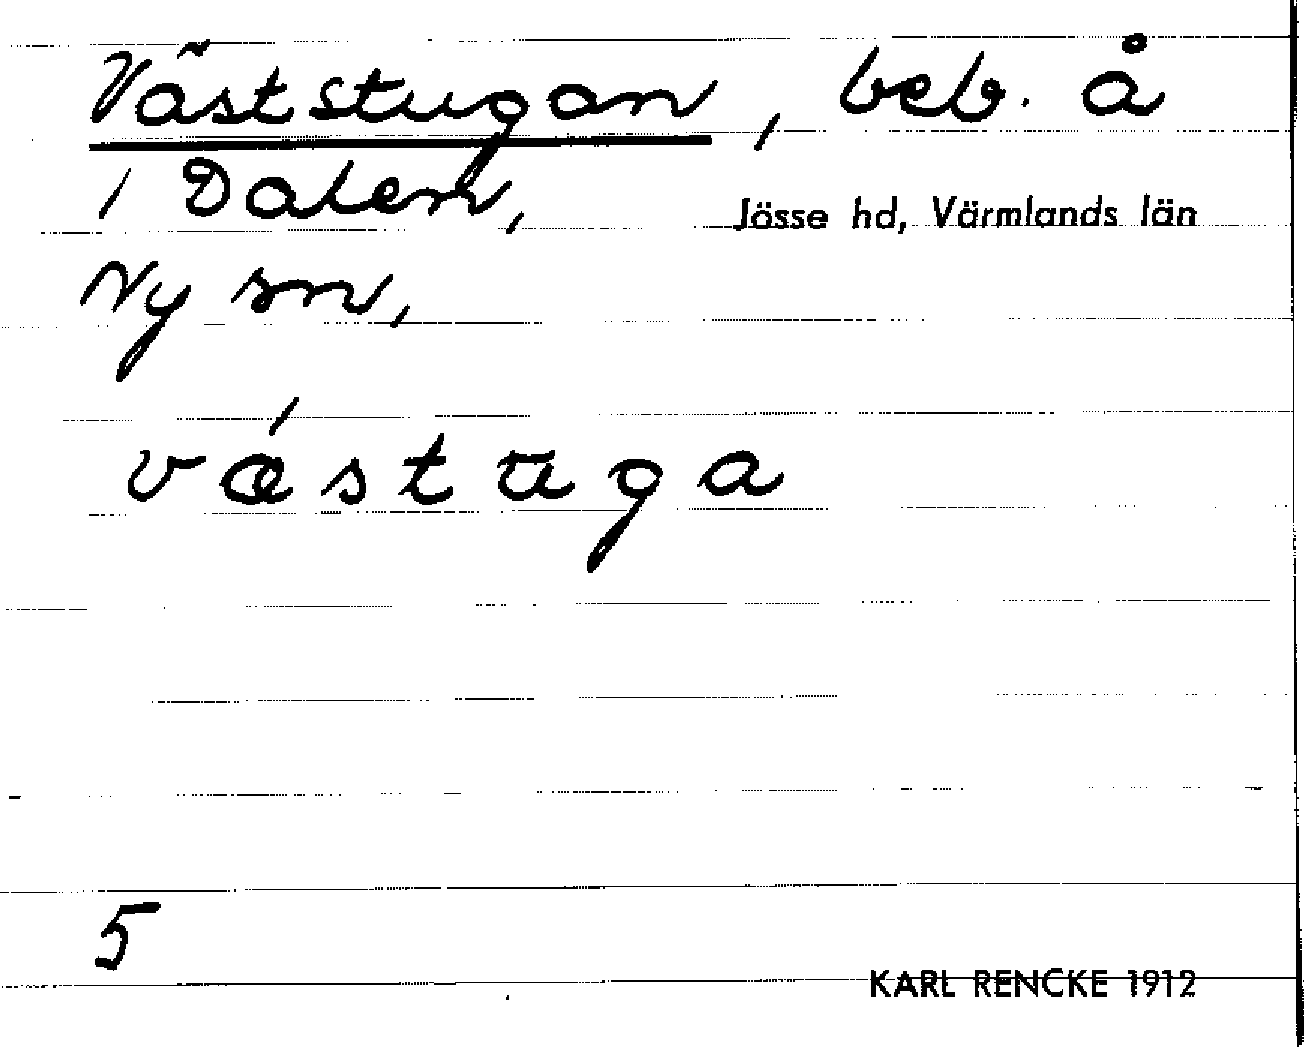 Väststugan, beb. å
1 Dalen, Jösse hd, Värmlands län
Ny sn,
vǽstuga
5
KARL RENCKE 1912